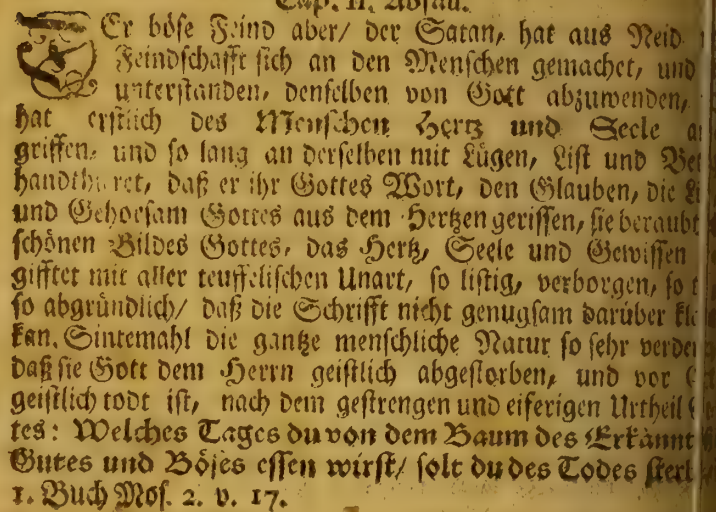 Er böse Feind aber/ der Satan, hat aus Neid
Feindschafft sich an den Menschen gemachet, und
unterstanden, denselben von Gott abzuwenden,
hat erstlich des Menschen Hertz und Seele
griffen, und so lang an derselben mit Lügen, List und
handthieret, daß er ihr Gottes Wort, den Glauben, die
und Gehorsam Gottes aus dem Hertzen gerissen, sie beraubt
schönen Bildes Gottes, das Hertz, Seele und Gewissen
gifftet mit aller teuffelischen Unart, so listig, verborgen, so
so abgründlich/ daß die Schrifft nicht genugsam darüber
kan. Sintemahl die gantze menschliche Natur so sehr
daß sie Gott dem Herrn geistlich abgestorben, und vor
geistlich todt ist, nach dem gestrengen und eiferigen Urtheil
tes: Welches Tages du von dem Baum des
Gutes und Böses essen wirst/ solt du des Todes
1. Buch Mos. 2. v. 17.